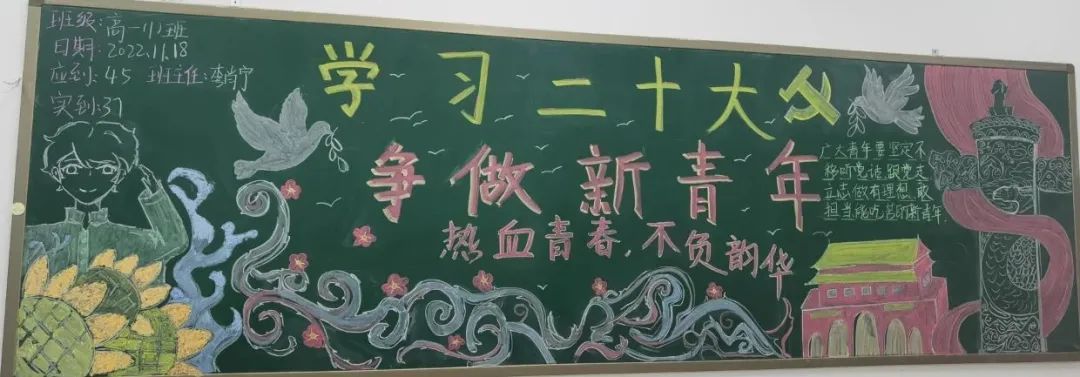 班级:高一(1)班
日期:2022.11.18
应到:45 班主任:李尚宁
实到:37
学习二十大
争做新青年
热血青春,不负韵华
广大青年要坚定不
移听党话,跟党走
立志做有理想,敢
担当,能吃苦的新青年